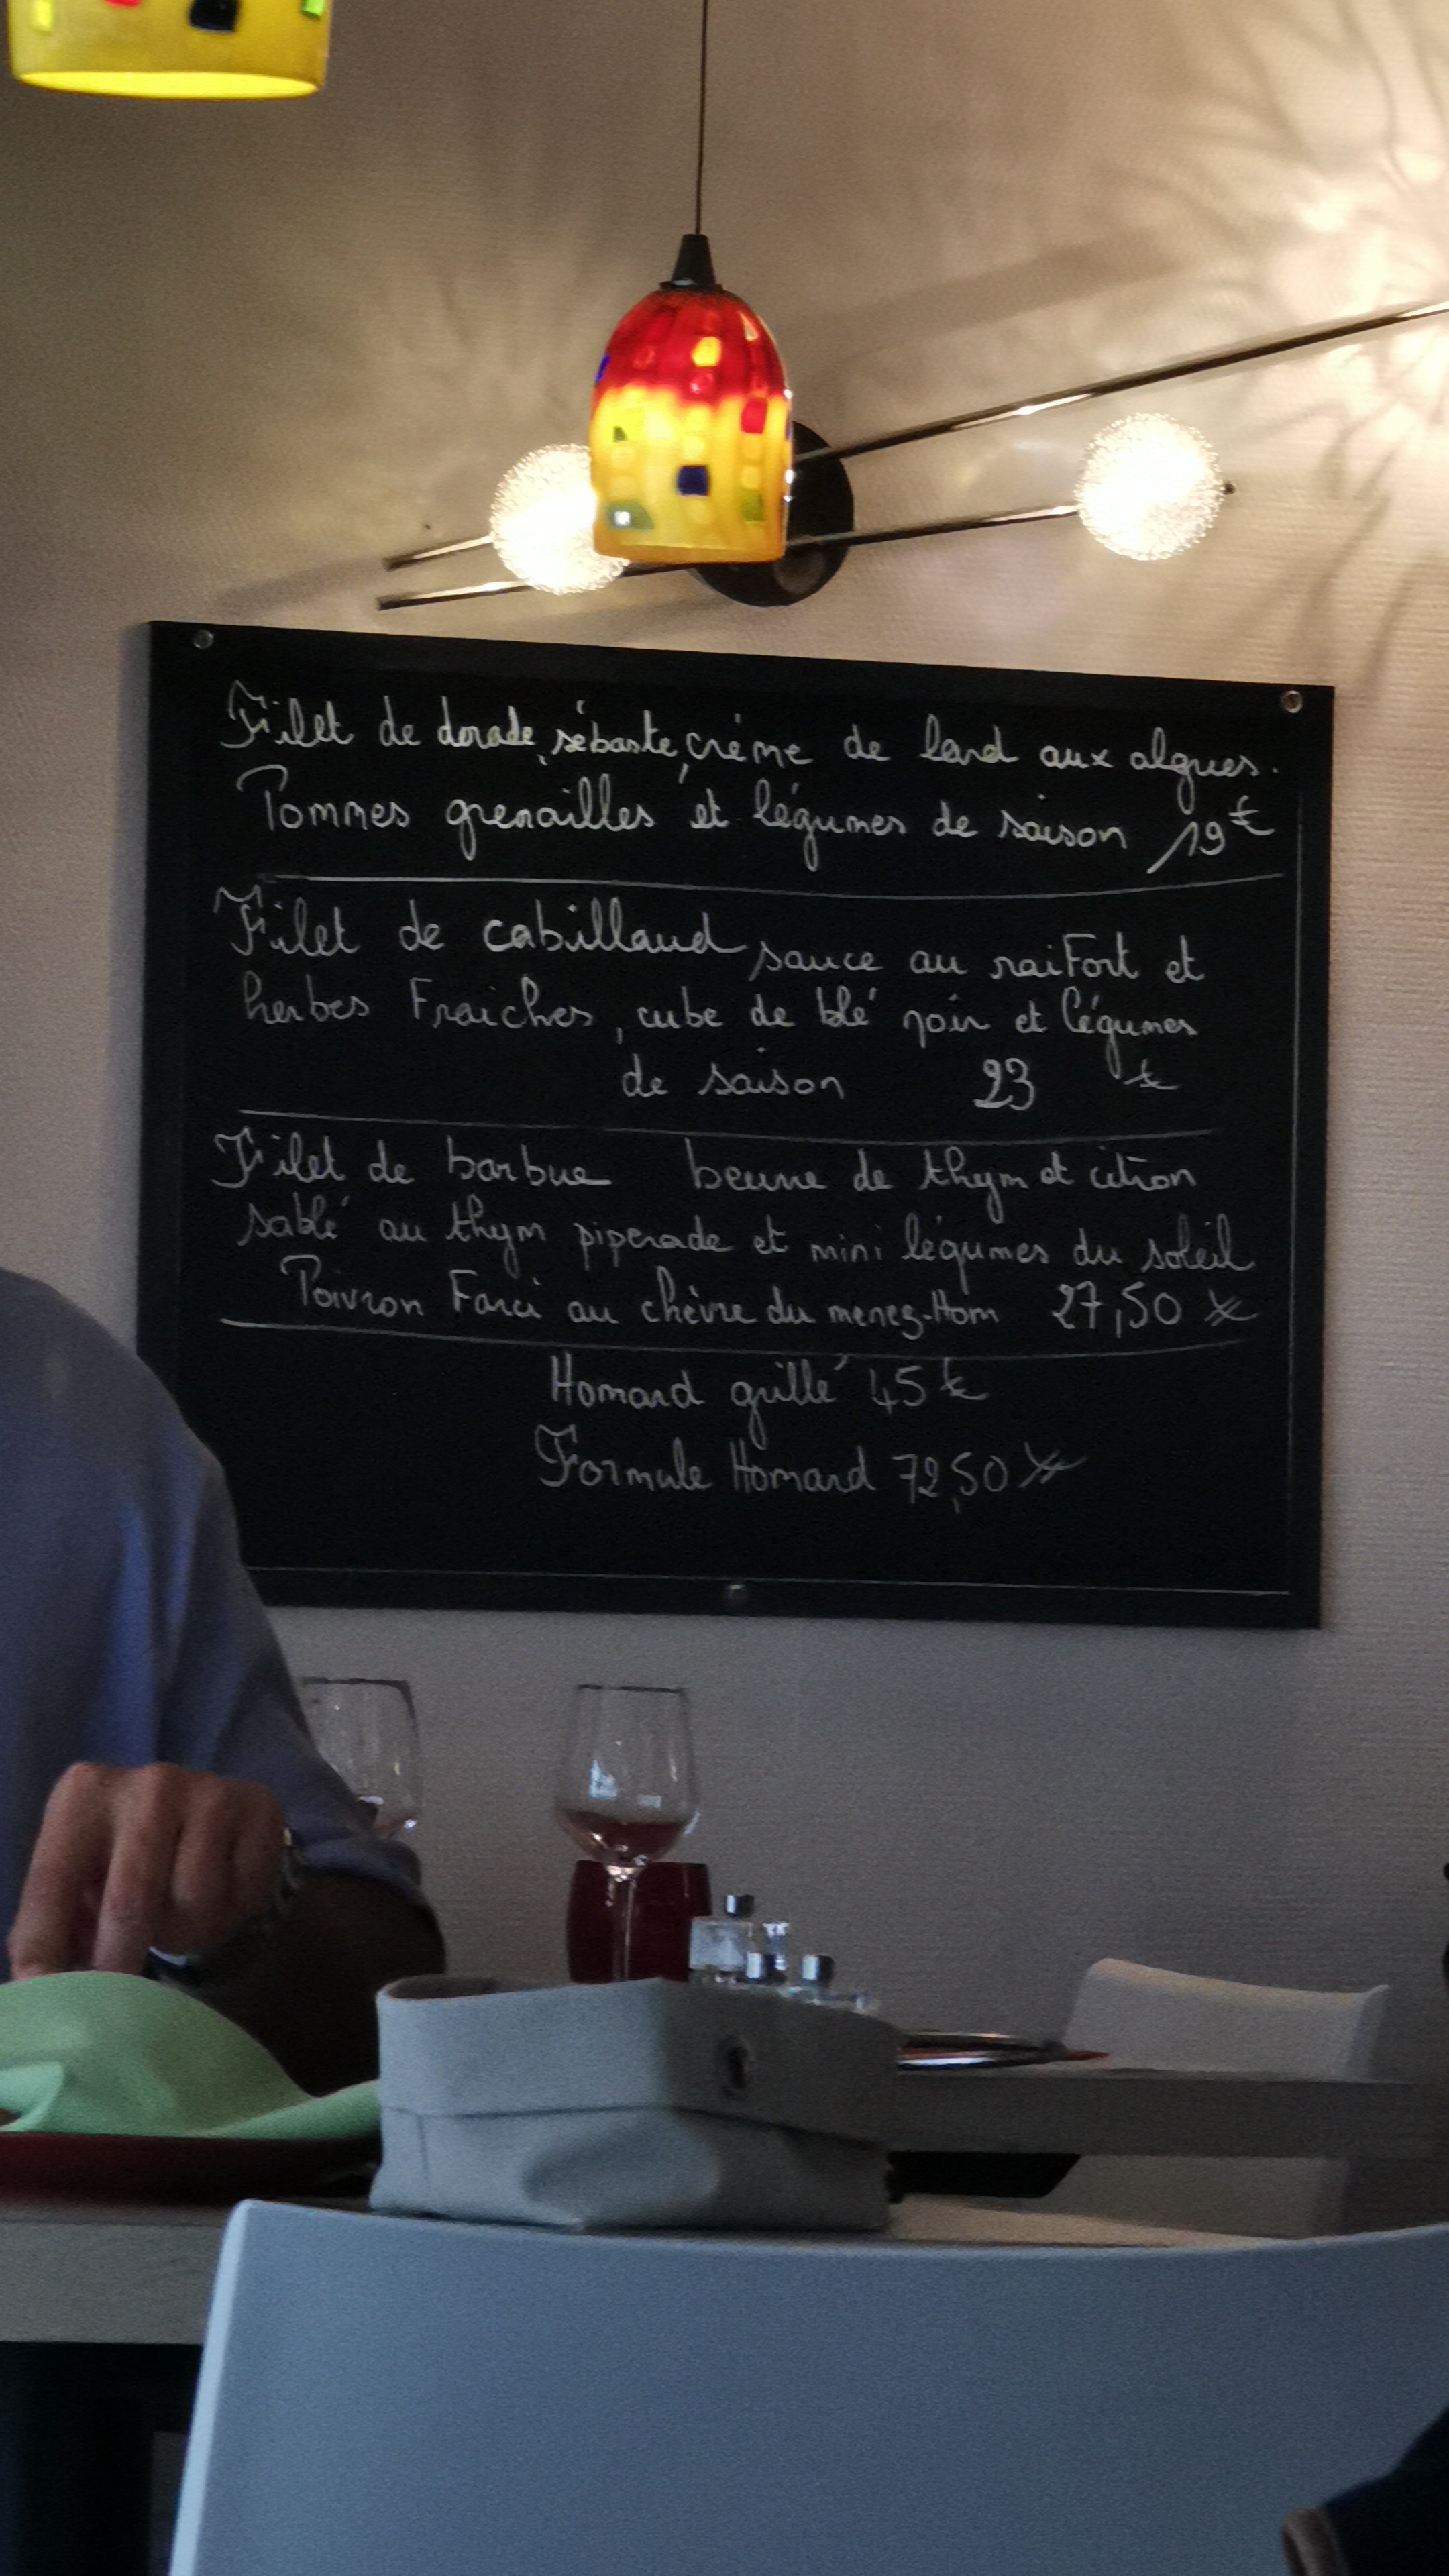 Filet de dorade, sébaste, crème de lard aux algues.
Pommes grenailles et légumes de saison 19€
Filet de cabillaud sauce au raiFort et
herbes Fraiches, cube de blé noir et légumes
de saison 23 €
Filet de barbue beurre de thym et citron
sablé au thym piperade et mini légumes du soleil
Poivron Farci au chèvre du menez-Hom 27,50 €
Homard grillé 45 €
Formule Homard 72,50 €